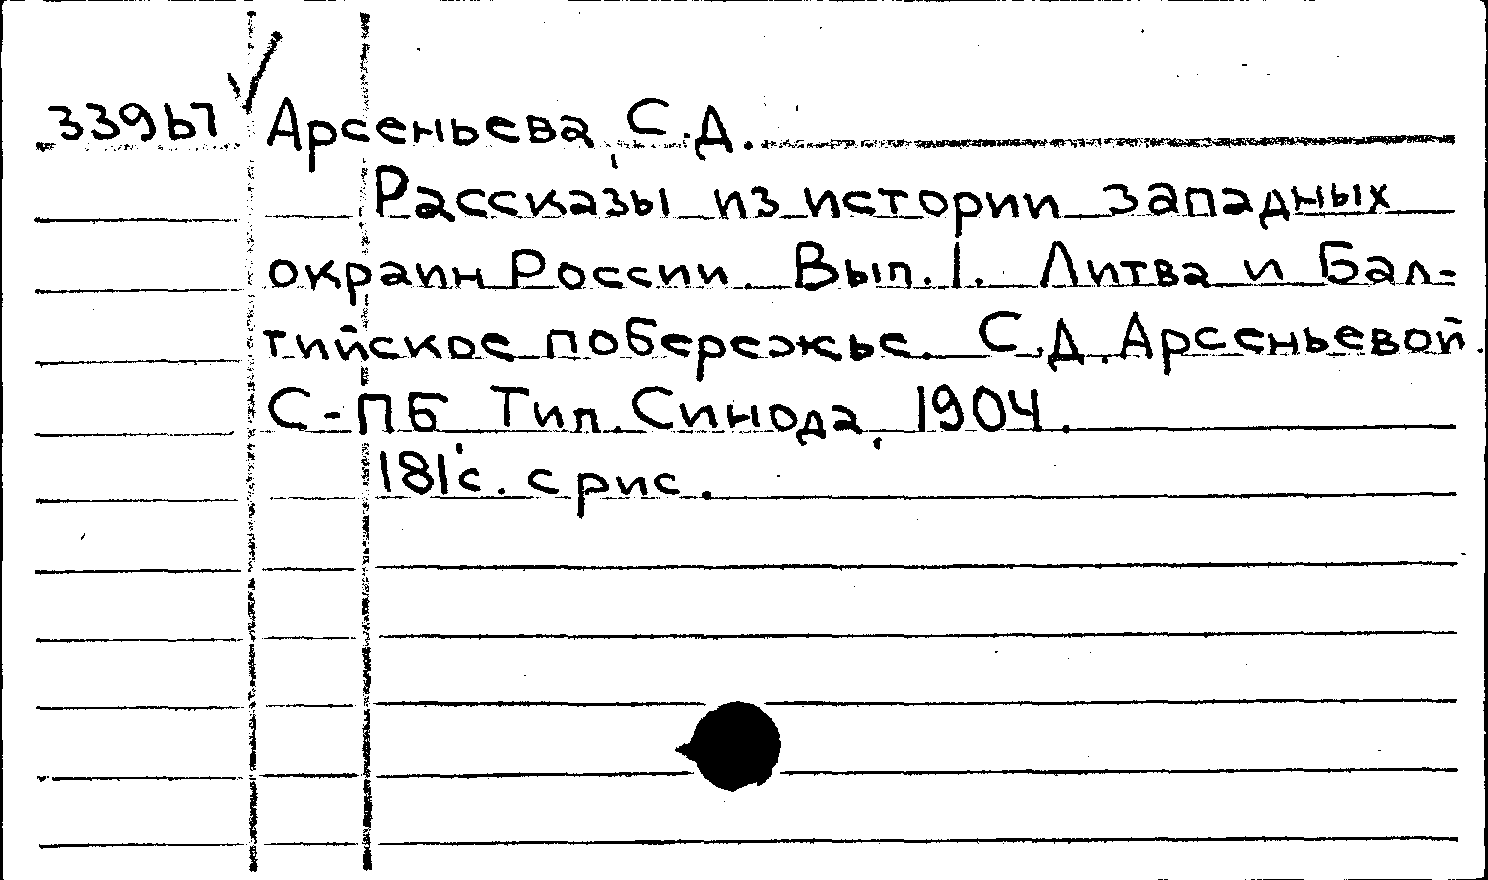 33967 Арсеньева, С.Д.
Рассказы из истории западных
окраин России. Вып. I. Литва и Бал=
тийское побережье. С.Д. Арсеньевой.
С-ПБ Тип. Синода, 1904.
181 с. с рис.